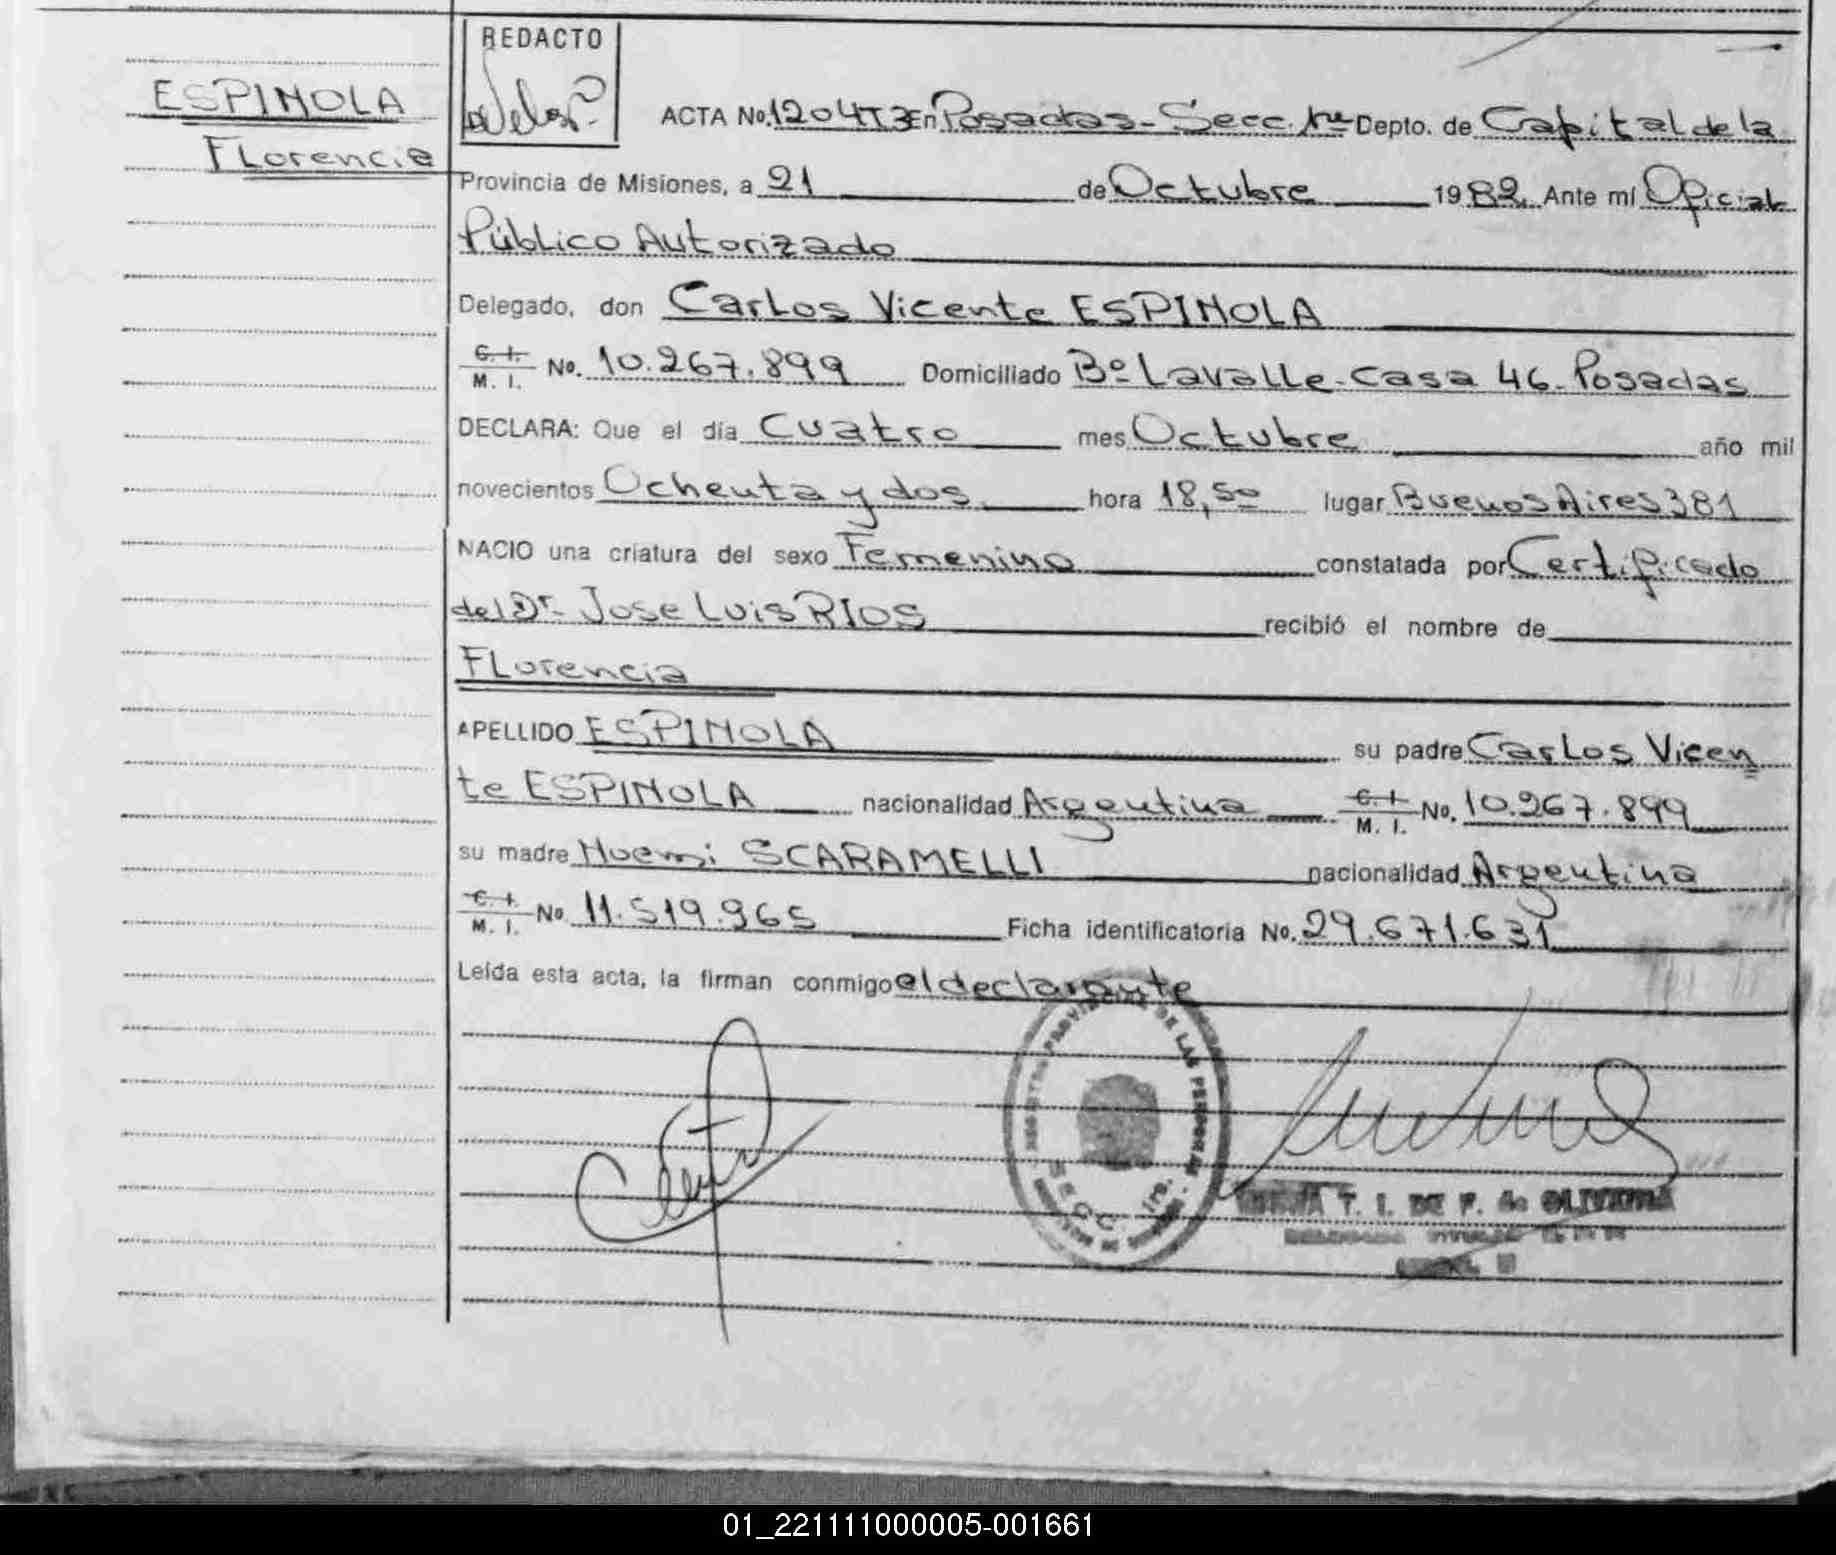 ESPINOLA
Florencia
REDACTO
ACTA No. 1204T3 En Posadas - Secc. 1ra Depto. de Capital de la
Provincia de Misiones, a 21 de Octubre 1982. Ante mi Oficial
Público Autorizado
Delegado, don Carlos Vicente ESPINOLA
C. I. M. I. No. 10.267.899 Domiciliado Bº Lavalle - Casa 46 - Posadas
DECLARA: Que el día Cuatro mes Octubre año mil
novecientos Ochenta y dos hora 18,50 lugar Buenos Aires 381
NACIO una criatura del sexo Femenino constatada por Certificado
del Dr. Jose Luis RIOS recibió el nombre de
Florencia
APELLIDO ESPINOLA su padre Carlos Vicen
te ESPINOLA nacionalidad Argentina C. I. M. I. No. 10.267.899
su madre Noemi SCARAMELLI nacionalidad Argentina
C. I. M. I. No 11.519.965 Ficha identificatoria No. 29.671.631
Leída esta acta, la firman conmigo el declarante
DE LAS PERSONAS
SECC. 1ra.
T. I. DE F. de OLIVEIRA
01_221111000005-001661